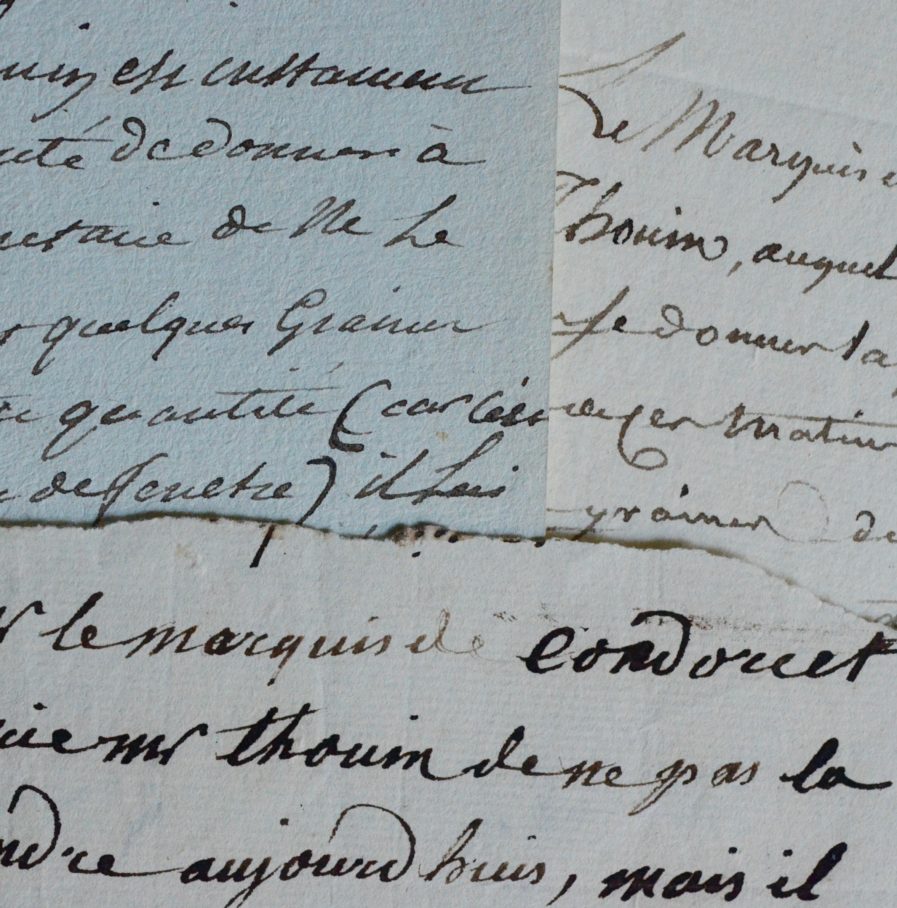 est instament
té de donner à
de Me Le
quelques Graines
quantité (car c'est
de fenetre) il Lui
Le Marquis
Thouin, auquel
se donner la
ces matin
graines de
le marquis de Condorcet
mr thouin de ne pas la
ndre aujourd huis, mais il